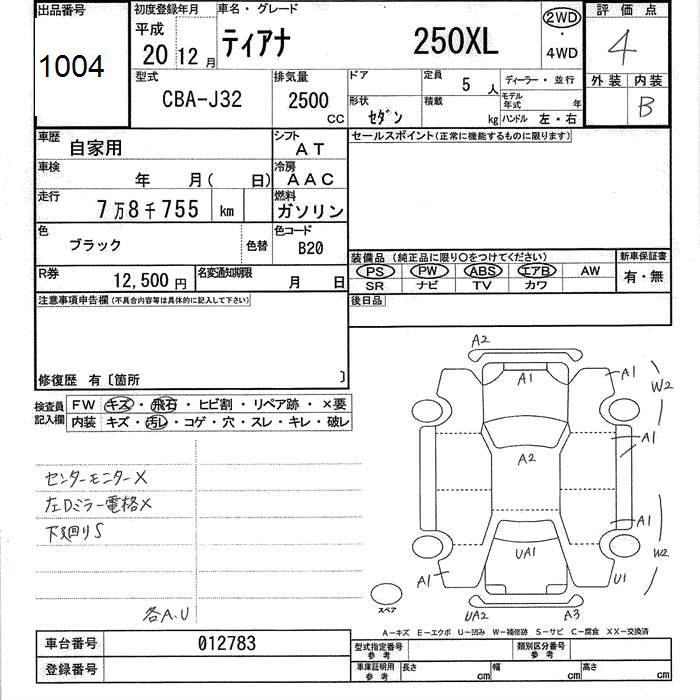 出品番号 初度登録年月 車名・グレード 評価点
1004 平成 20 12月 ティアナ 250XL 2WD・4WD 4
型式 排気量 ドア 定員 5人 ディーラー・並行 外装 内装
CBA-J32 2500CC 形状 セダン 積載 kg モデル年式 年 ハンドル 左・右 B
車歴 自家用 シフト AT セールスポイント(正常に機能するものに限ります)
車検 年 月( 日) 冷房 AAC
走行 7万8千755 km 燃料 ガソリン
色 ブラック 色替 色コード B20 装備品 (純正品に限り○をつけてください) 新車保証書
PS PW ABS エアB AW 有・無
R券 12,500円 名変通知期限 月 日 SR ナビ TV カワ
注意事項申告欄(不具合内容等は具体的に記入して下さい) 後日品
修復歴 有〔箇所 〕
検査員記入欄 FW キズ・飛石・ヒビ割・リペア跡・×要
内装 キズ・汚レ・コゲ・穴・スレ・キレ・破レ
センターモニターX
左Dミラー電格X
下廻りS
各A.U
A2
A1 A1 W2
A1
A2
A1
UA1 W2
A1 U1
スペア UA2 A3
A-キズ E-エクボ U-凹み W-補修跡 S-サビ C-腐食 XX-交換済
車台番号 012783 型式指定番号 参考 類別区分番号 参考
登録番号 車庫証明用 参考 長さ cm 幅 cm 高さ cm